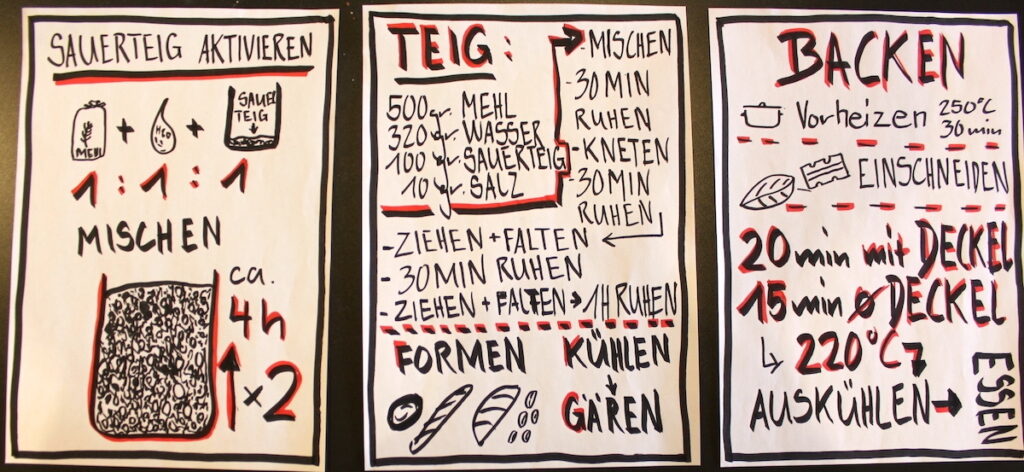 SAUERTEIG AKTIVIEREN
MEHL + H2O + SAUER TEIG
1 : 1 : 1
MISCHEN
ca.
4h
×2
TEIG:
500 gr. MEHL
320 gr. WASSER
100 gr. SAUERTEIG
10 gr. SALZ
- MISCHEN
- 30 MIN
RUHEN
- KNETEN
- 30 MIN
RUHEN
- ZIEHEN + FALTEN
- 30 MIN RUHEN
- ZIEHEN + FALTEN → 1H RUHEN
FORMEN
KÜHLEN
↓
GÄREN
BACKEN
Vorheizen 250°C
30 min
EINSCHNEIDEN
20 min mit DECKEL
15 min ø DECKEL
↳ 220°C
AUSKÜHLEN →
ESSEN